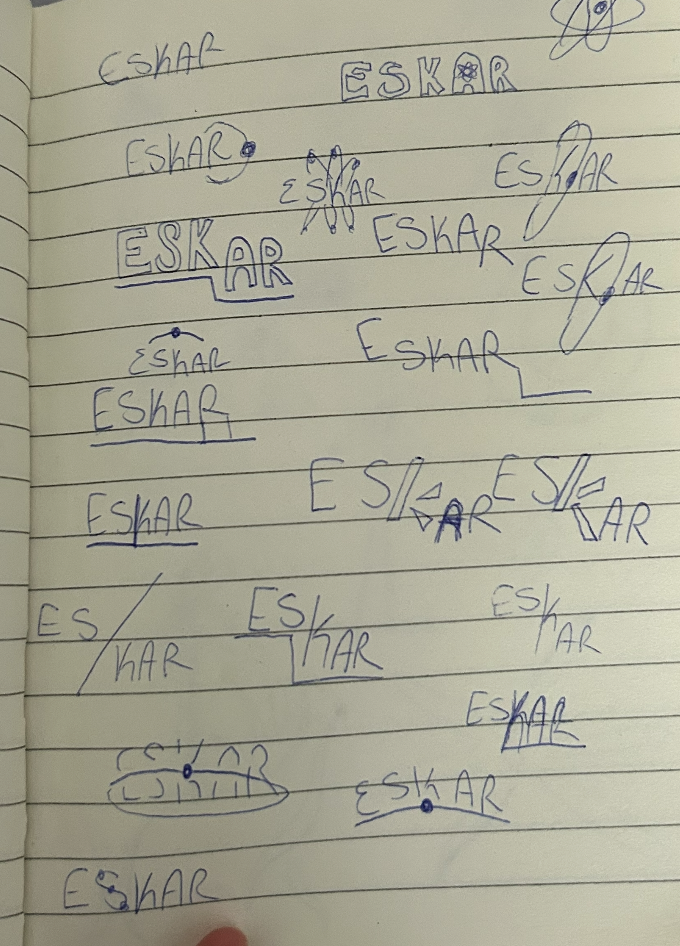 ESKAR
ESKAR
ESKAR
ESKAR
ESKAR
ESKAR
ESKAR
ESKAR
ESKAR
ESKAR
ESKAR
ESKAR
ESKAR
ESKAR
ES
KAR
ESKAR
ESK
AR
ESKAR
ESKAR
ESKAR
ESKAR